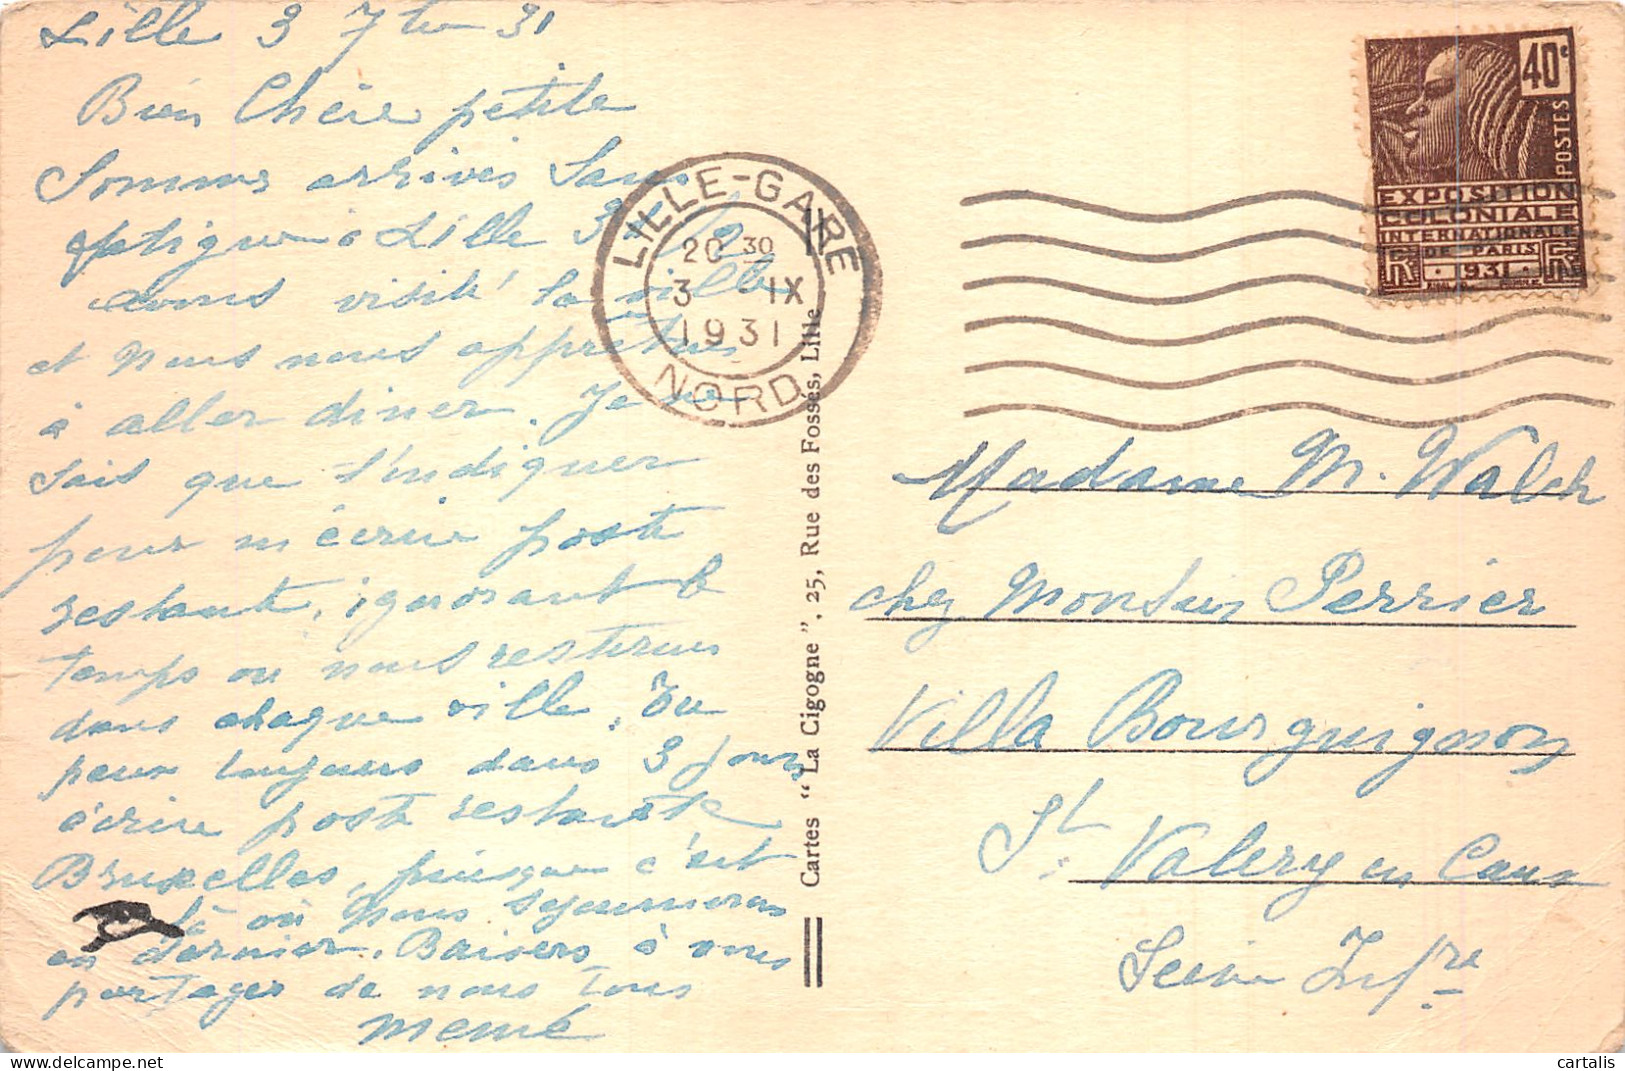 Lille 3 7bre 31
Bien Chère petite
Sommes arrivés Sans
fatigue à Lille
avons visité la ville
et nous nous apprêtons
à aller diner. Je ne
sais que t'indiquer
pour m'écrire poste
restante, ignorant le
temps ou nous resterons
dans chaque ville. Tu
peux toujours dans 3 jours
écrire poste restante
Bruxelles, puisque c'est
là où nous séjournerons
en dernier. Baisers à vous
partager de nous tous
Mémé
LILLE-GARE
20 30
3 -IX
1931
NORD
Cartes "La Cigogne", 25, Rue des Fossés, Lille
40c
POSTES
EXPOSITION
COLONIALE
INTERNATIONALE
DE PARIS
1931
Madame M. Walch
chez Monsieur Perrier
Villa Bourguignon
St Valery en Caux
Seine Infre
cartalis